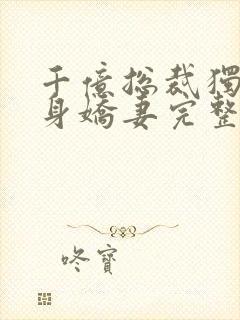 千億總裁獨
身嬌妻完整
咚寶